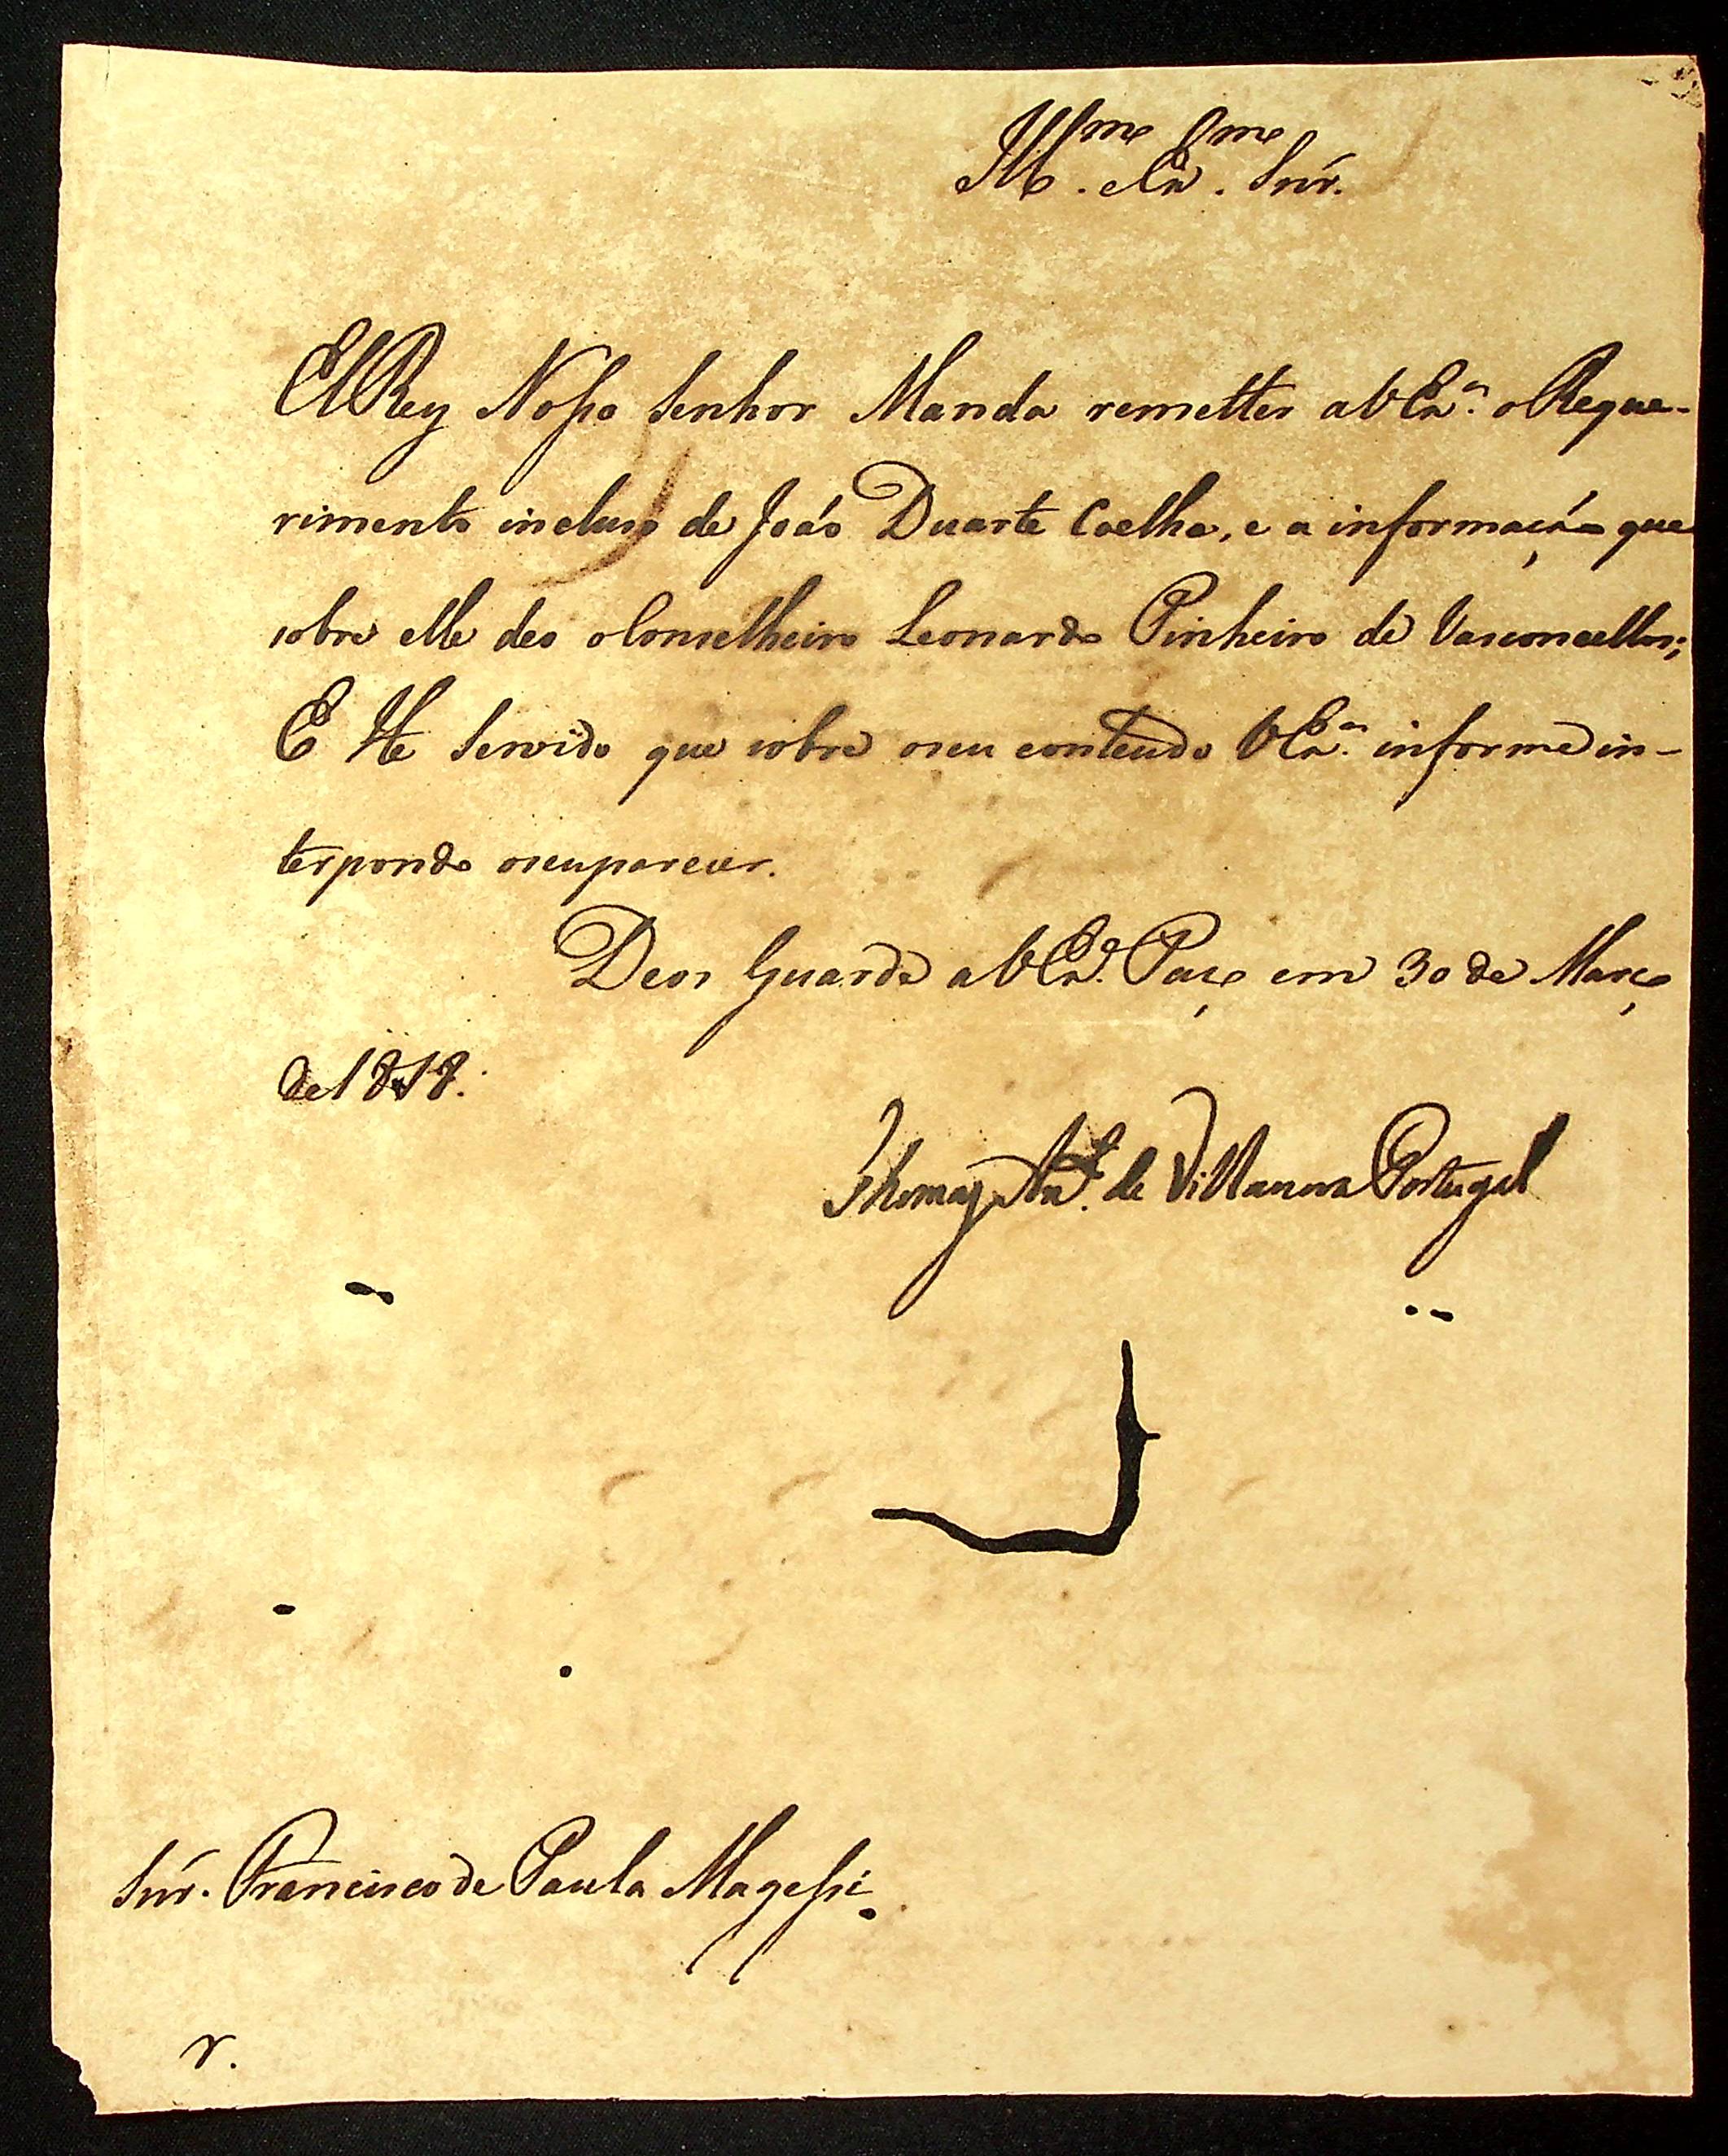 Ill.mo Ex.mo Snr.
ElRey Nosso Senhor Manda remetter a V Ex.a o Reque-
rimento incluso de João Duarte Coelho, e a informação que
sobre elle deo o Conselheiro Leonardo Pinheiro de Vasconcellos;
E He Servido que sobre o seu conteudo V Ex.a informe in-
terpondo o seu parecer.
Deos Guarde a V Ex.a Paço em 30 de Março
de 1818.
Thomaz Ant.o de Villanova Portugal
Snr. Francisco de Paula Magessi.
r.